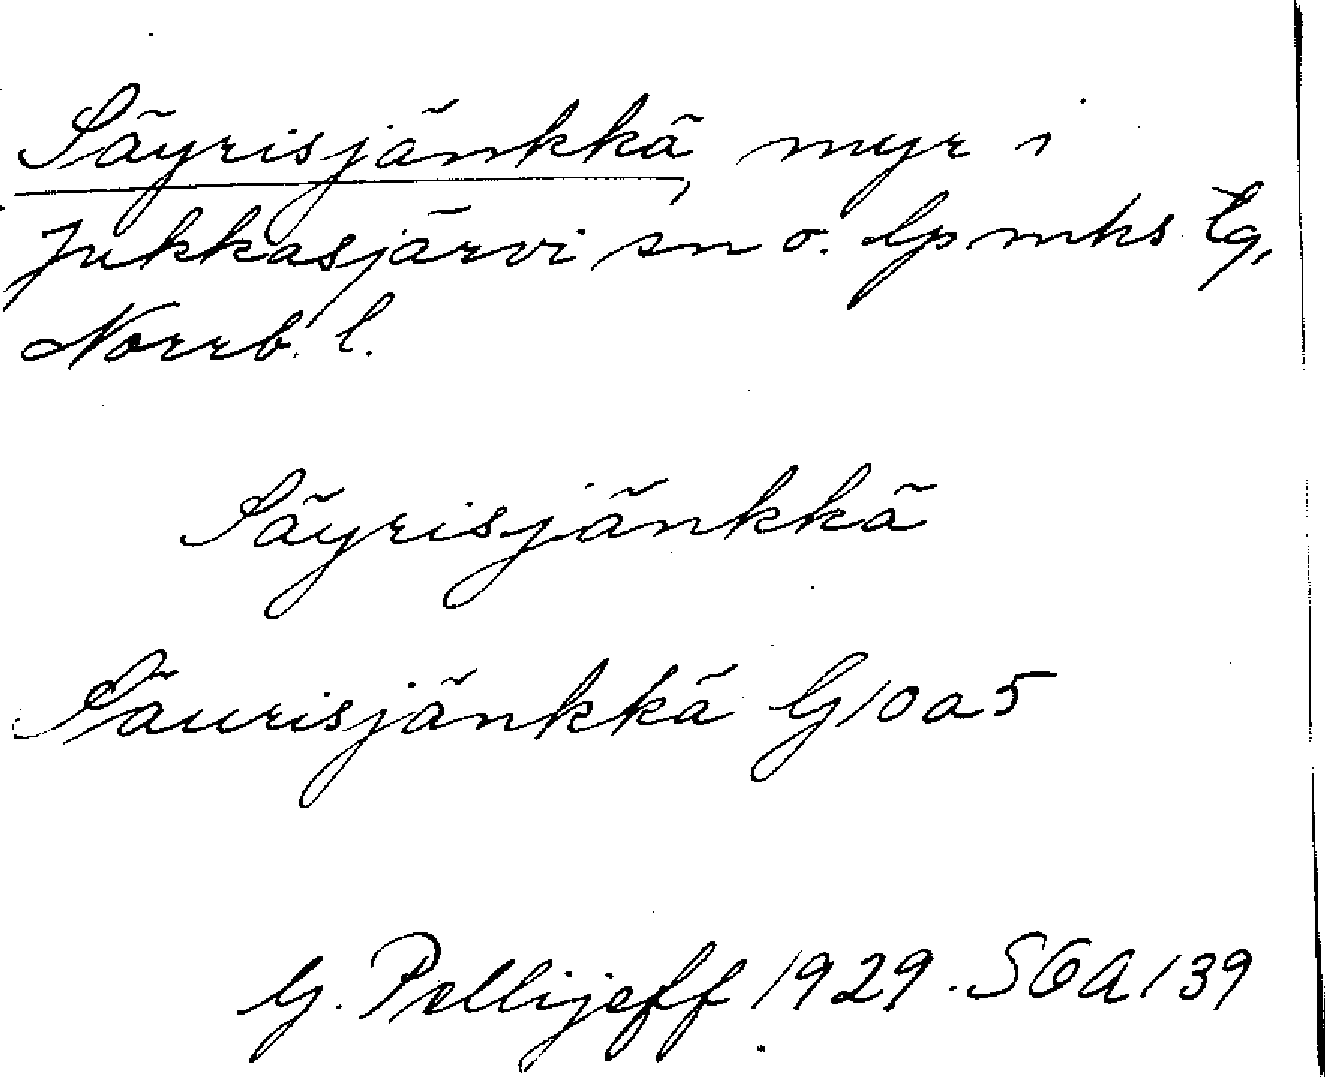 Säyrisjänkkä, myr i
Jukkasjärvi sn o. lpmks tg,
Norrb. l.
Säyrisjänkkä
Säurisjänkkä G10a5
G. Pellijeff 1929. SOA 139